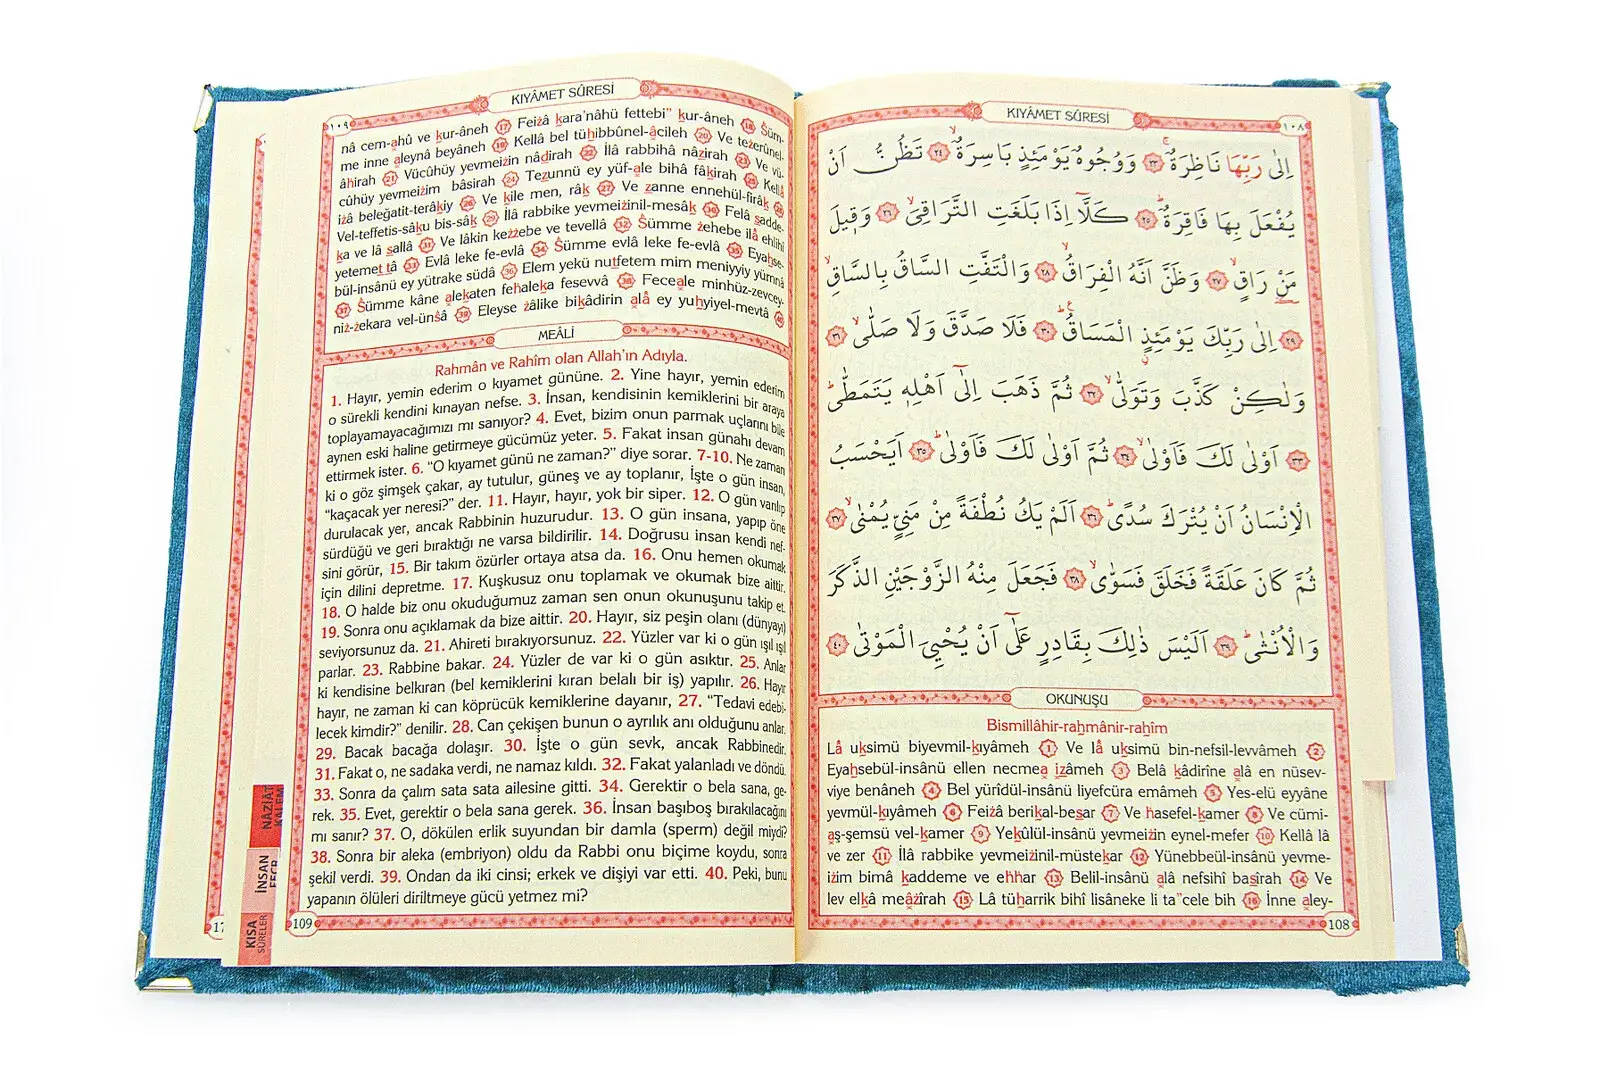 KIYÂMET SÛRESİ
١٠٨
اِلٰى رَبِّهَا نَاظِرَةٌۚ ﴿٢٣﴾ وَوُجُوهٌ يَوْمَئِذٍ بَاسِرَةٌۙ ﴿٢٤﴾ تَظُنُّ اَنْ
يُفْعَلَ بِهَا فَاقِرَةٌۜ ﴿٢٥﴾ كَلَّٓا اِذَا بَلَغَتِ التَّرَاقِيَۙ ﴿٢٦﴾ وَقٖيلَ
مَنْ رَاقٍۙ ﴿٢٧﴾ وَظَنَّ اَنَّهُ الْفِرَاقُۙ ﴿٢٨﴾ وَالْتَفَّتِ السَّاقُ بِالسَّاقِۙ
﴿٢٩﴾ اِلٰى رَبِّكَ يَوْمَئِذٍ الْمَسَاقُۜ ﴿٣٠﴾ فَلَا صَدَّقَ وَلَا صَلّٰىۙ ﴿٣١﴾
وَلٰكِنْ كَذَّبَ وَتَوَلّٰىۙ ﴿٣٢﴾ ثُمَّ ذَهَبَ اِلٰٓى اَهْلِهٖ يَتَمَطّٰىۜ
﴿٣٣﴾ اَوْلٰى لَكَ فَاَوْلٰىۙ ﴿٣٤﴾ ثُمَّ اَوْلٰى لَكَ فَاَوْلٰىۜ ﴿٣٥﴾ اَيَحْسَبُ
الْاِنْسَانُ اَنْ يُتْرَكَ سُدًىۜ ﴿٣٦﴾ اَلَمْ يَكُ نُطْفَةً مِنْ مَنِيٍّ يُمْنٰىۙ ﴿٣٧﴾
ثُمَّ كَانَ عَلَقَةً فَخَلَقَ فَسَوّٰىۙ ﴿٣٨﴾ فَجَعَلَ مِنْهُ الزَّوْجَيْنِ الذَّكَرَ
وَالْاُنْثٰىۜ ﴿٣٩﴾ اَلَيْسَ ذٰلِكَ بِقَادِرٍ عَلٰٓى اَنْ يُحْيِيَ الْمَوْتٰى ﴿٤٠﴾
OKUNUŞU
Bismillâhir-rahmânir-rahîm
Lâ uksimü biyevmil-kıyâmeh 1 Ve lâ uksimü bin-nefsil-levvâmeh 2
Eyahsebül-insânü ellen necmea izâmeh 3 Belâ kâdirîne alâ en nüsev-
viye benâneh 4 Bel yürîdül-insânü liyefcüra emâmeh 5 Yes-elü eyyâne
yevmül-kıyâmeh 6 Feiżâ berikal-besar 7 Ve hasefel-kamer 8 Ve cümi-
aş-şemsü vel-kamer 9 Yekûlül-insânü yevmeiżin eynel-mefer 10 Kellâ lâ
ve zer 11 İlâ rabbike yevmeiżinil-müstekar 12 Yünebbeül-insânü yevme-
iżim bimâ kaddeme ve ehhar 13 Belil-insânü alâ nefsihî basîrah 14 Ve
lev elkâ meâżîrah 15 Lâ tüharrik bihî lisâneke li ta"cele bih 16 İnne aley-
108
KIYÂMET SÛRESİ
١٠٩
nâ cem-ahû ve kur-âneh 17 Feiżâ kara'nâhü fettebi" kur-âneh 18 Śüm-
me inne aleynâ beyâneh 19 Kellâ bel tühibbûnel-âcileh 20 Ve teżerûnel-
âhirah 21 Vücûhüy yevmeiżin nâdirah 22 İlâ rabbihâ nâzirah 23 Ve vü-
cûhüy yevmeiżim bâsirah 24 Tezunnü ey yüf-ale bihâ fâkirah 25 Kellâ
iżâ beleğatit-terâkiy 26 Ve kîle men, râk 27 Ve zanne ennehül-firâk 28
Vel-teffetis-sâku bis-sâk 29 İlâ rabbike yevmeiżinil-mesâk 30 Felâ sadde-
ka ve lâ sallâ 31 Ve lâkin keżżebe ve tevellâ 32 Śümme żehebe ilâ ehlihî
yetemettâ 33 Evlâ leke fe-evlâ 34 Śümme evlâ leke fe-evlâ 35 Eyahse-
bül-insânü ey yütrake südâ 36 Elem yekü nutfetem mim meniyyiy yümnâ
37 Śümme kâne alekaten fehaleka fesevvâ 38 Feceale minhüz-zevcey-
niż-żekara vel-ünśâ 39 Eleyse żâlike bikâdirin alâ ey yuhyiyel-mevtâ 40
MEÂLİ
Rahmân ve Rahîm olan Allah'ın Adıyla.
1. Hayır, yemin ederim o kıyamet gününe. 2. Yine hayır, yemin ederim
o sürekli kendini kınayan nefse. 3. İnsan, kendisinin kemiklerini bir araya
toplayamayacağımızı mı sanıyor? 4. Evet, bizim onun parmak uçlarını bile
aynen eski haline getirmeye gücümüz yeter. 5. Fakat insan günahı devam
ettirmek ister. 6. "O kıyamet günü ne zaman?" diye sorar. 7-10. Ne zaman
ki o göz şimşek çakar, ay tutulur, güneş ve ay toplanır, İşte o gün insan,
"kaçacak yer neresi?" der. 11. Hayır, hayır, yok bir siper. 12. O gün varılıp
durulacak yer, ancak Rabbinin huzurudur. 13. O gün insana, yapıp öne
sürdüğü ve geri bıraktığı ne varsa bildirilir. 14. Doğrusu insan kendi nef-
sini görür, 15. Bir takım özürler ortaya atsa da. 16. Onu hemen okumak
için dilini depretme. 17. Kuşkusuz onu toplamak ve okumak bize aittir.
18. O halde biz onu okuduğumuz zaman sen onun okunuşunu takip et.
19. Sonra onu açıklamak da bize aittir. 20. Hayır, siz peşin olanı (dünyayı)
seviyorsunuz da. 21. Ahireti bırakıyorsunuz. 22. Yüzler var ki o gün ışıl ışıl
parlar. 23. Rabbine bakar. 24. Yüzler de var ki o gün asıktır. 25. Anlar
ki kendisine belkıran (bel kemiklerini kıran belalı bir iş) yapılır. 26. Hayır
hayır, ne zaman ki can köprücük kemiklerine dayanır, 27. "Tedavi edebi-
lecek kimdir?" denilir. 28. Can çekişen bunun o ayrılık anı olduğunu anlar.
29. Bacak bacağa dolaşır. 30. İşte o gün sevk, ancak Rabbinedir.
31. Fakat o, ne sadaka verdi, ne namaz kıldı. 32. Fakat yalanladı ve döndü.
33. Sonra da çalım sata sata ailesine gitti. 34. Gerektir o bela sana, ge-
rek. 35. Evet, gerektir o bela sana gerek. 36. İnsan başıboş bırakılacağını
mı sanır? 37. O, dökülen erlik suyundan bir damla (sperm) değil miydi?
38. Sonra bir aleka (embriyon) oldu da Rabbi onu biçime koydu, sonra
şekil verdi. 39. Ondan da iki cinsi; erkek ve dişiyi var etti. 40. Peki, bunu
yapanın ölüleri diriltmeye gücü yetmez mi?
109
NÂZİÂT
KALEM
İNSAN
FECR
KISA
SÛRELER